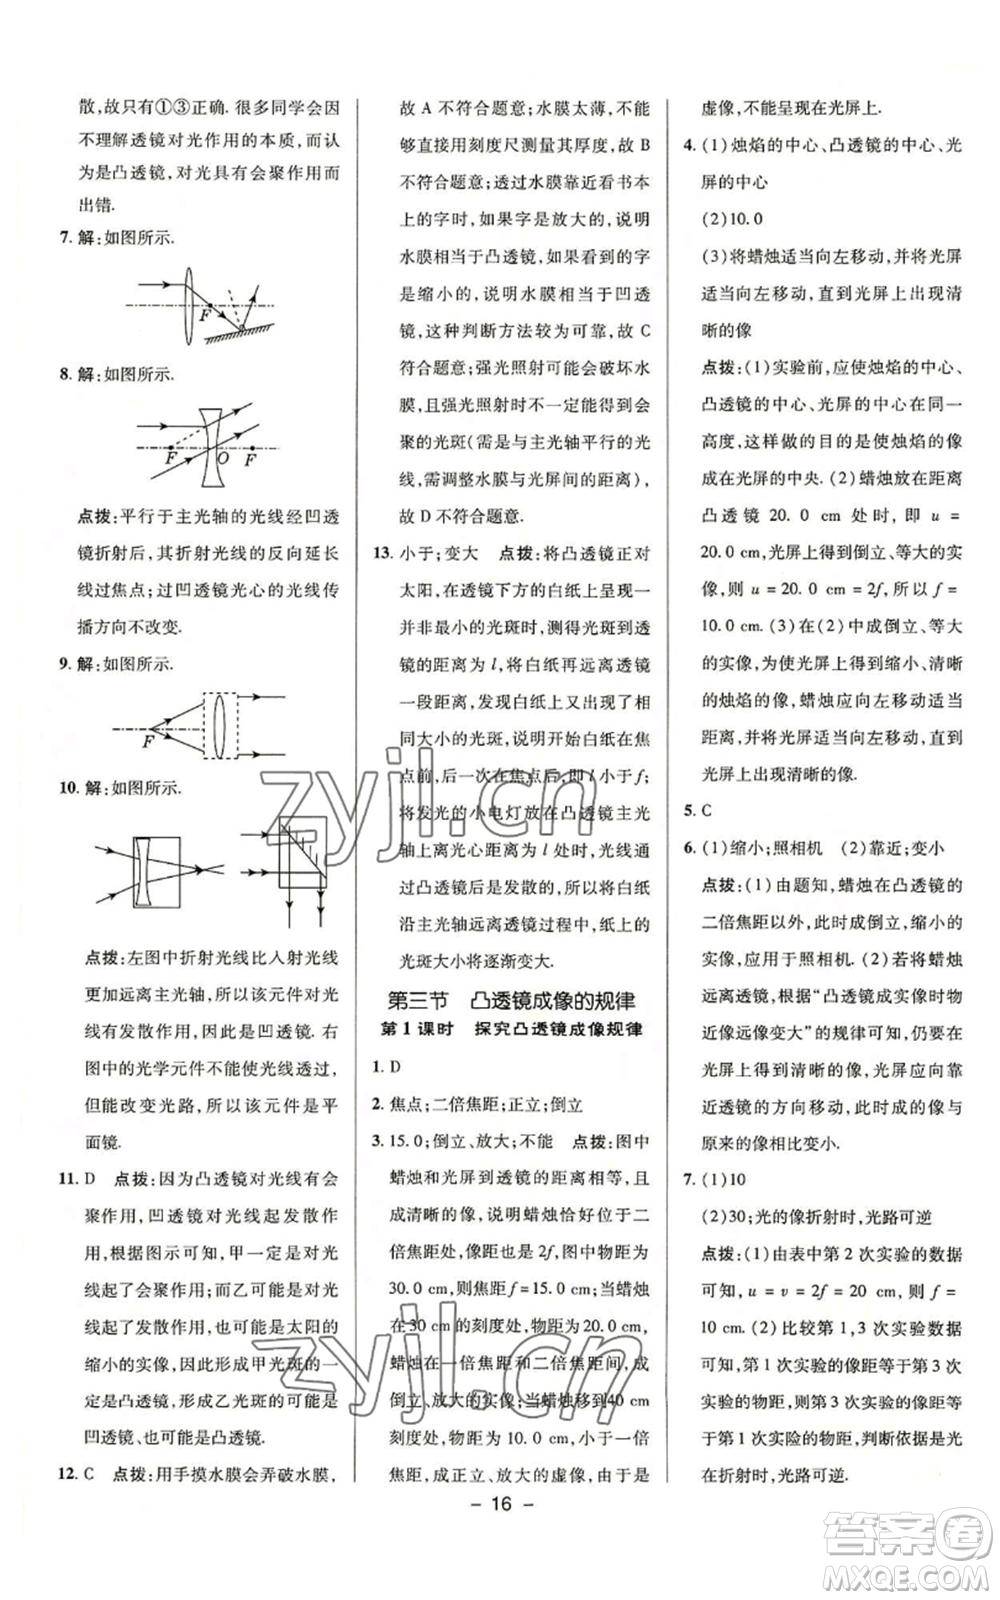 散,故只有①③正确. 很多同学会因
不理解透镜对光作用的本质,而认
为是凸透镜,对光具有会聚作用而
出错.
7. 解:如图所示.
F
8. 解:如图所示.
F O F
点拨:平行于主光轴的光线经凹透
镜折射后,其折射光线的反向延长
线过焦点;过凹透镜光心的光线传
播方向不改变.
9. 解:如图所示.
F
10. 解:如图所示.
点拨:左图中折射光线比入射光线
更加远离主光轴,所以该元件对光
线有发散作用,所以是凹透镜. 右
图中的光学元件不能透过光线,
但能改变光路,所以该元件是平
面镜.
11. D 点拨:因为凸透镜对光线有会
聚作用,凹透镜对光线起发散作
用,根据图示可知,甲一定是对光
线起了会聚作用;而乙可能是对光
线起了发散作用,也可能是太阳的
缩小的实像,因此形成甲光斑的一
定是凸透镜,形成乙光斑的可能是
凹透镜、也可能是凸透镜.
12. C 点拨:用手摸水膜会弄破水膜,
故 A 不符合题意;水膜太薄,不能
够使用刻度尺测量其厚度,故 B
不符合题意;透过水膜靠近看书本
上的字时,如果字是放大的,说明
水膜相当于凸透镜,如果看到的字
是缩小的,说明水膜相当于凹透
镜,这种判断方法较为可靠,故 C
符合题意;强光照射可能会破坏水
膜,且强光照射时不一定能得到会
聚的光斑(需是与主光轴平行的光
线,需调整水膜与光屏间的距离),
故 D 不符合题意.
13. 小于;变大 点拨:将凸透镜正对
太阳,在透镜下方的白纸上呈现一
并非最小的光斑时,测得光斑到透
镜的距离为 l,将白纸再远离透镜
一段距离,发现白纸上的光斑为相
同大小的光斑,说明开始白纸在焦
点前,后一次在焦点后,即 l 小于 f;
将发光的小电灯放在凸透镜主光
轴上离光心距离为 l 处时,光线经
凸透镜后是发散的,所以,白纸由
沿主光轴远离透镜过程中,纸上的
光斑大小将逐渐变大.
第三节 凸透镜成像的规律
第 1 课时 探究凸透镜成像规律
1. D
2. 焦点;二倍焦距;正立;倒立
3. 15.0;倒立、放大;不能 点拨:图中
蜡烛和光屏到透镜的距离相等,且
成清晰的像,说明蜡烛恰好位于二
倍焦距处,像距也是 2f,图中物距为
30.0 cm,则焦距 f=15.0 cm;当蜡烛
在 30 cm 的刻度处,物距为 20.0 cm,
蜡烛在一倍焦距和二倍焦距间,成
倒立、放大的实像;当蜡烛移到40 cm
刻度处,物距为 10.0 cm,小于一
倍焦距,成正立、放大的虚像,由于是
虚像,不能呈现在光屏上.
4. (1)烛焰的中心、凸透镜的中心、光
屏的中心
(2)10.0
(3)将蜡烛适当向左移动,并将光屏
适当向左移动,直到光屏上出现清
晰的像
点拨:(1)实验前,应使烛焰的中心、
凸透镜的中心、光屏的中心在同一
高度,这样做的目的是使烛焰的像
成在光屏的中央. (2)蜡烛放在距离
凸透镜 20.0 cm 处时,即 u =
20.0 cm,光屏上得到倒立、等大的实
像,则 u = 20.0 cm = 2f,所以 f =
10.0 cm. (3)在(2)中成倒立、等大
的实像,要使光屏上得到缩小、清晰
的烛焰的像,蜡烛应向左移动适当
距离,并将光屏适当向左移动,直到
光屏上出现清晰的像.
5. C
6. (1)缩小;照相机 (2)靠近;变小
点拨:(1)由题知,蜡烛在凸透镜的
二倍焦距以外,此时成倒立、缩小的实
像,应用于照相机. (2)若将蜡烛
远离透镜,根据“凸透镜成实像时物
近像远像变大”的规律可知,仍要在
光屏上得到清晰的像,光屏应向靠
近透镜的方向移动,此时成的像与
原来的像相比变小.
7. (1)10
(2)30;光的像折射时,光路可逆
点拨:(1)由表中第 2 次实验的数据
可知, u = v = 2f = 20 cm, 则 f =
10 cm. (2)比较第 1,3 次实验的数据
可知,第 1 次实验的像距等于第 3 次
实验的物距,则第 3 次实验的像距等
于第 1 次实险的物距,判断依据是光
发生折射时,光路可逆.
- 16 -
zyjl.cn
zyjl.cn
答案卷
MXQE.COM